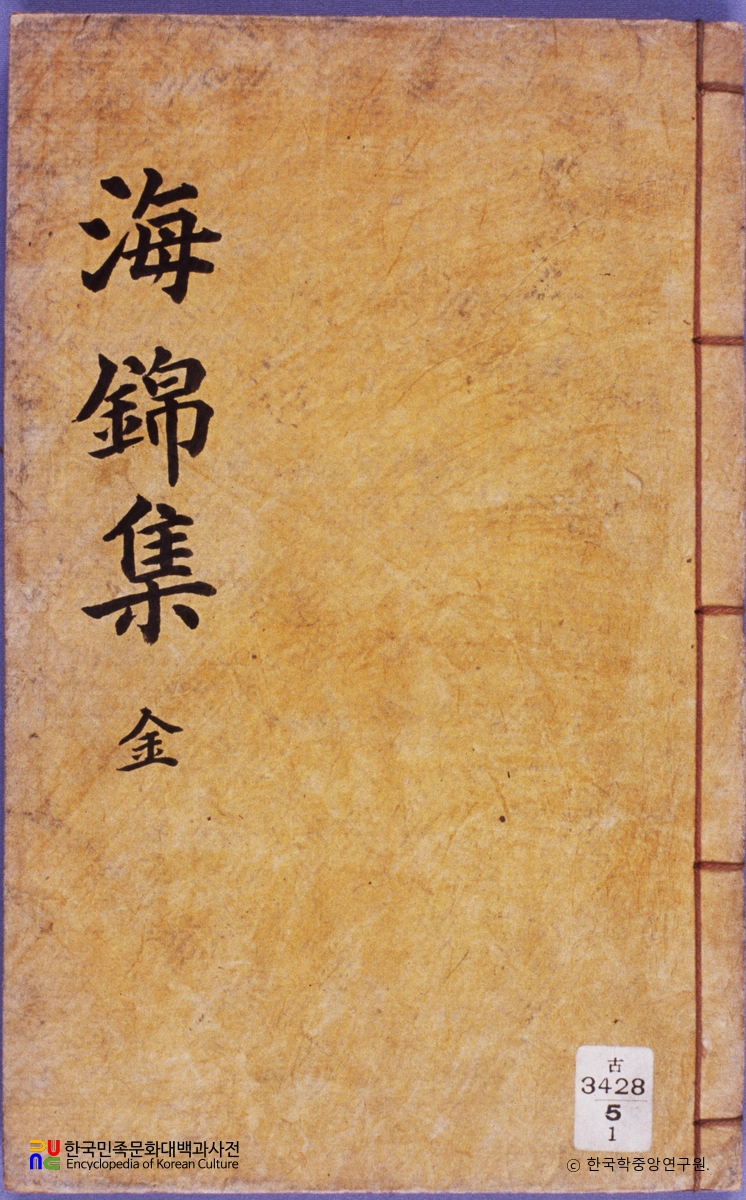 海錦集 金
古
3428
5
1
한국민족문화대백과사전
Encyclopedia of Korean Culture
© 한국학중앙연구원.